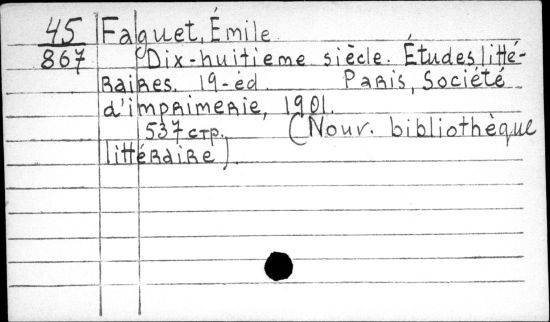 45 Faguet, Émile
867 Dix-huitieme siècle. Études litté-
raires. 19-éd. Paris, Société
d'imprimerie, 1901.
537 стр. (Nouv. bibliothèque
littéraire).